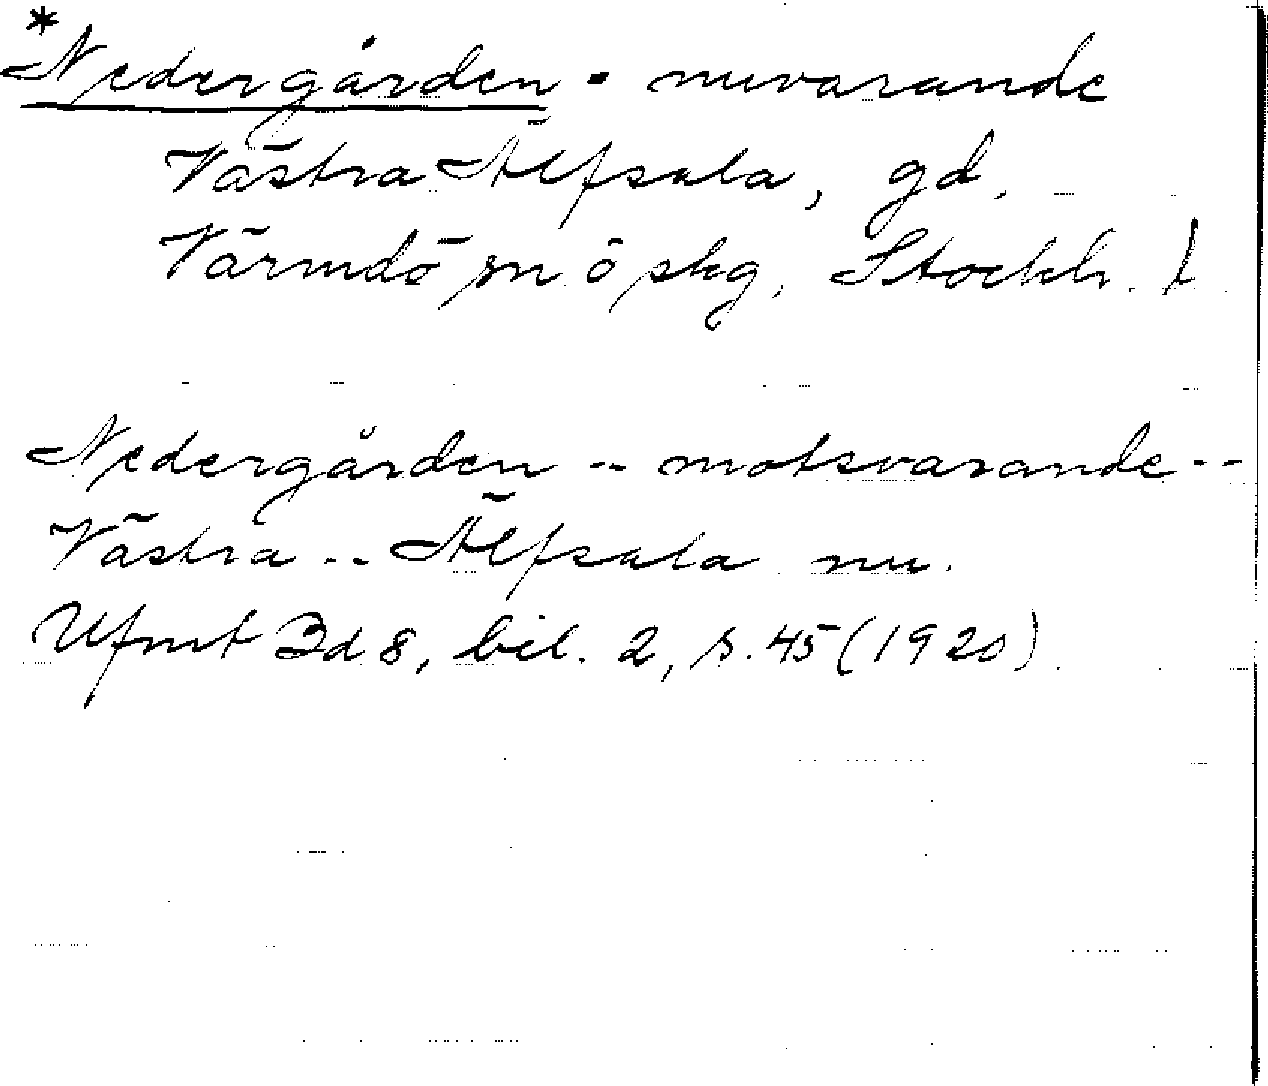 *Nedergården - nuvarande
Västra Älfsala, gd,
Värmdö sn ö skg, Stockh. l
Nedergården -- motsvarande --
Västra -- Älfsala nu.
Ufmt Bd 8, bil. 2, s. 45 (1920).